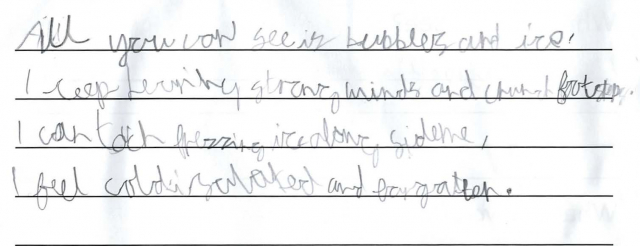 All you can see is bubbles and ice.
I keep hearing strong winds and crunch footstep.
I can toch frezzing ice along side me,
I feel cold isalated and forgotten.